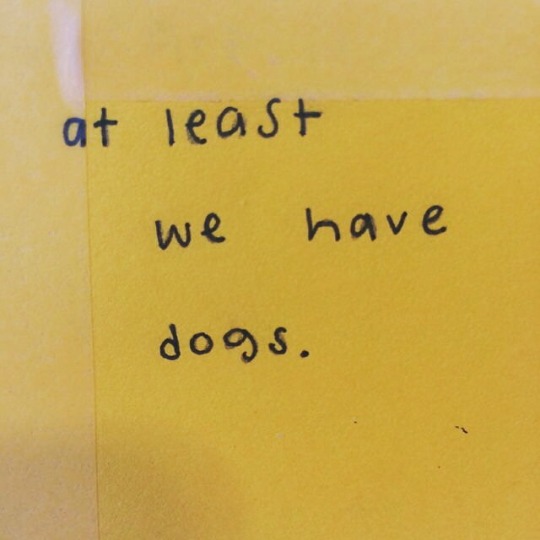 at least
we have
dogs.